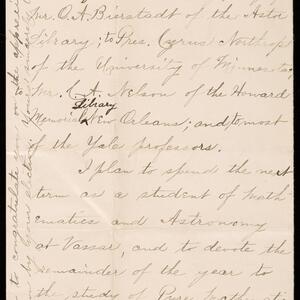 Mr. O. A. Bierstadt of the Astor
Library; to Pres. Cyrus Northrop
of the University of Minnesota;
Mr. C. A. Nelson of the Howard
Library
Memorial, New Orleans; and to most
of the Yale professors.
I plan to spend the next
term as a student of Math
ematics and Astronomy
at Vassar, and to devote the
remainder of the year to
the study of Pure Math
to congratulate on the